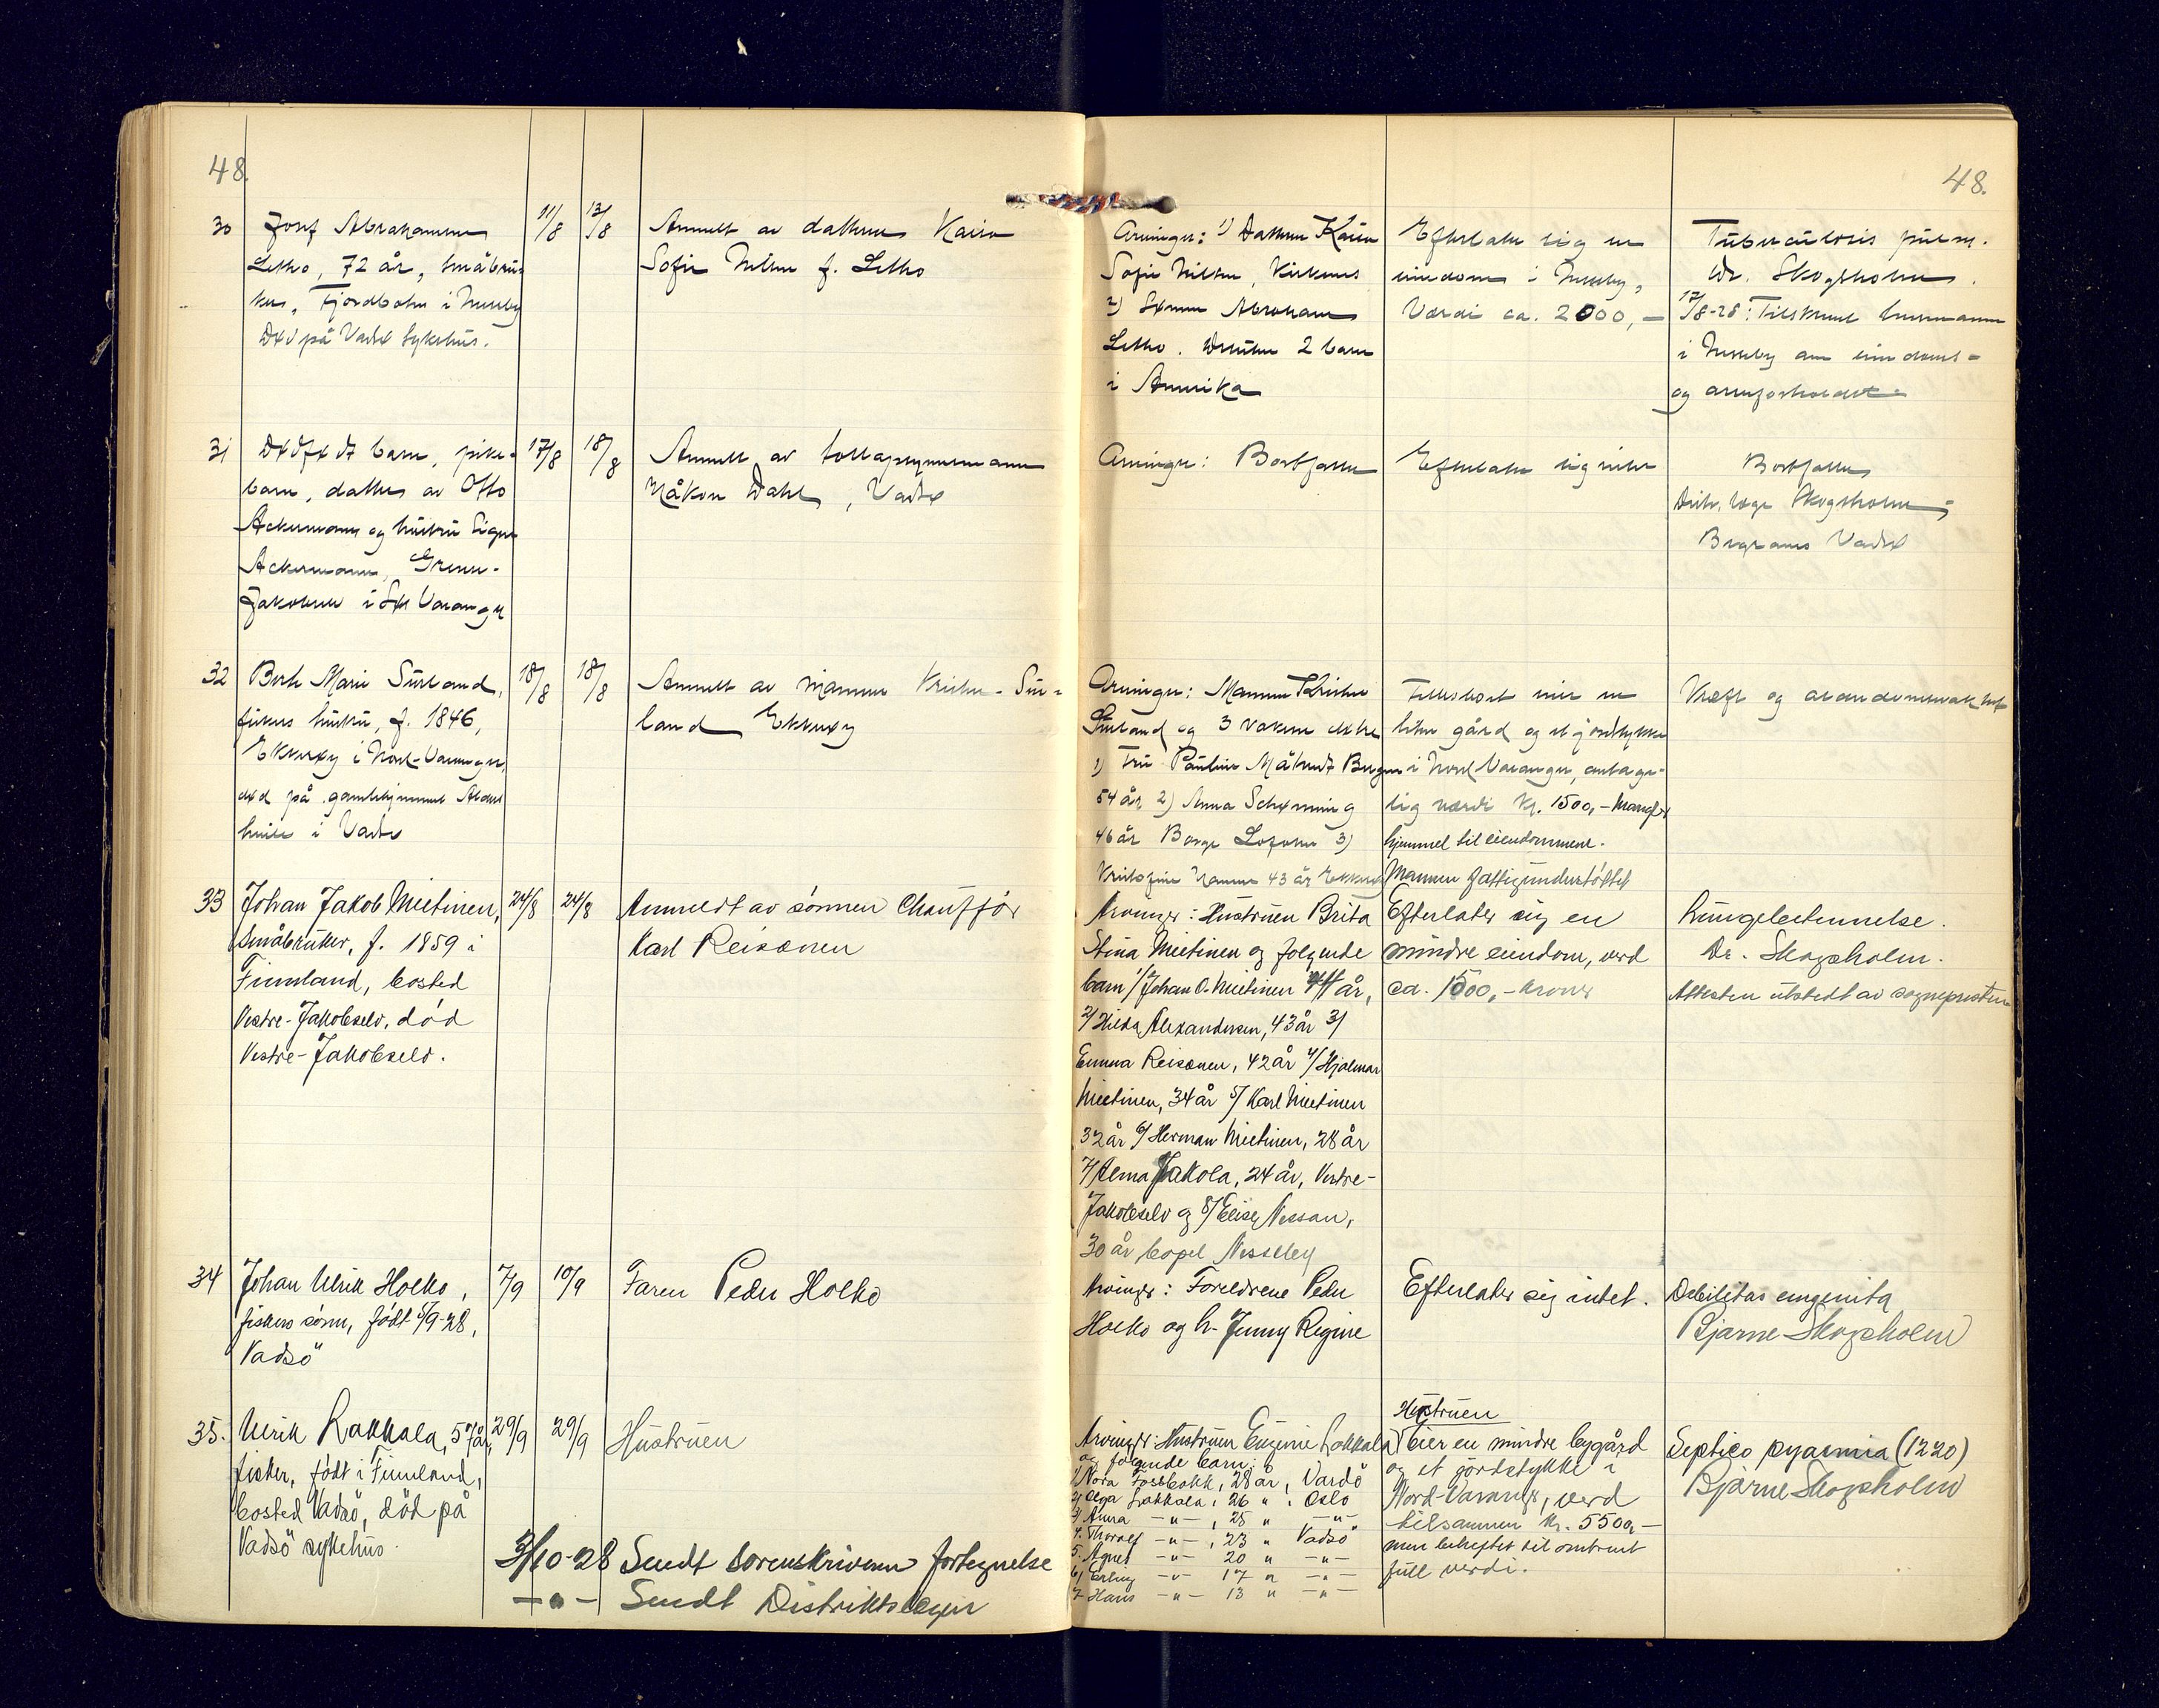 48.
48.
30
Josef Abrahamsen
Letho, 72 år, småbru-
ker, Fjordbotn i Nesseby
Død på Vadsø sykehus.
11/8
13/8
Anmeldt av datteren Kaisa
Sofie Nilsen f. Letho
Arvinger: 1) Datteren Kaisa
Sofie Nilsen, Kirkenes
2) Sønnen Abraham
Letho. Desuten 2 barn
i Amerika
Efterlater sig en
eiendom i Nesseby,
Værdi ca. 2000,-
Tuberculosis pulm.
Dr. Skogsholm.
17/8-28: Tilskrevet lensmannen
i Nesseby om eiendoms-
og arveforholdet
31
Dødfødt barn, pike-
barn, datter av Otto
Ackermann og hustru Signe
Ackermann, Grense-
Jakobselv i Sør Varanger
17/8
18/8
Anmeldt av tollopsynsmann
Håkon Dahl, Vadsø
Arvinger: Bortfaller
Efterlater sig intet
Bortfaller
Distr. læge Skogsholm,
Begraves Vadsø
32
Berte Marie Surland,
fiskers hustru, f. 1846,
Ekkerøy i Nord-Varanger,
død på gamlehjemmet Aldershvile
i Vadsø
18/8
18/8
Anmeldt av mannen Krister Sur-
land Ekkerøy
Arvinger: Mannen Krister
Surland og 3 voksne døtre
1) Fru Pauline Måkestad Bergen
54 år 2) Anna Schønning
46 år Borge Lofoten 3)
Kristofine Hansen 43 år Ekkerøy
Felleskapet eier en
liten gård og et jordstykke
i Nord Varanger, antage-
lig værdi kr. 1500,- Mangler
hjemmel til eiendommene.
Mannen fattigunderstøttet
Kræft og alderdomssvakhet
33
Johan Jakob Mietinen,
Småbruker, f. 1859 i
Finnland, bosted
Vestre-Jakobselv, død
Vestre-Jakobselv.
24/8
24/8
Anmeldt av sønnen Chauffør
Karl Reisænen
Arvinger: Hustruen Brita
Stina Mietinen og følgende
barn 1/ Johan O. Mietinen 44 år,
2/ Hilda Alexandersen, 43 år 3/
Emma Reisænen, 42 år 4/ Hjalmar
Mietinen, 34 år 5/ Karl Mietinen
32 år 6/ Herman Mietinen, 28 år
7/ Alma Jakola, 24 år, Vestre-
Jakobselv og 8/ Elise Nessan,
30 år bopel Nesseby
Efterlater sig en
mindre eiendom, verd
ca. 1500,- kroner
Lungebetennelse.
Dr. Skogsholm.
Attesten utstedt av sognepresten
34
Johan Ulrik Holko,
fiskers sønn, født 5/9-28,
Vadsö
7/9
10/9
Faren Peder Holko
Arvinger: Foreldrene Peder
Holko og h. Jenny Regine
Efterlater sig intet.
Debilitas congenita
Bjarne Skogsholm
35.
Ulrik Lakkala, 57 år,
fisker, født i Finnland,
bosted Vadsö, död på
Vadsö sykehus.
29/9
29/9
Hustruen
3/10-28 Sendt sorenskriveren fortegnelse
-"- Sendt Distriktslegen
Arvinger: Hustruen Eugenie Lakkala
og følgende barn:
1) Nora Fossbakk, 28 år, Vardö
2) Olga Lakkala, 26 " , Oslo
3) Anna -"- , 25 " -"-
4. Thoralf -"- , 23 " Vadsö
5. Agnes -"- 20 " -"-
6) Erling -"- 17 " -"-
7. Hans -"- 13 " -"-
Hustruen
eier en mindre bygård
og et jordstykke i
Nord-Varanger, verd
tilsammen kr. 5500,-
men beheftet til omtrent
full verdi.
Septico pyaemia (1220)
Bjarne Skogsholm